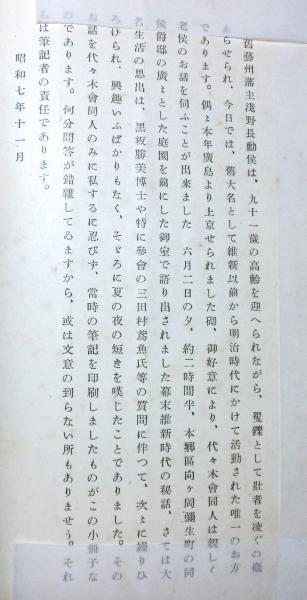 舊藝州藩主淺野長勳侯は、九十一歲の高齡を迎へられながら、矍鑠として壯者を凌ぐの槪
あらせられ、今日では、舊大名として維新以前から明治時代にかけて活動された唯一のお方
であります。偶〻本年廣島より上京せられました砌、御好意により、代々木會同人は親しく
老侯のお話を伺ふことが出來ました 六月二日の夕、約二時間半、本鄕區向ヶ岡彌生町の同
侯爵邸の廣〻とした庭園を前にした御室で語り出されました幕末維新時代の秘話、さては大
名生活の思出は、黑板勝美博士や特に參會の三田村鳶魚氏等の質問に伴つて、次〻に繰りひ
ろげられ、興趣いふばかりもなく、そゞろに夏の夜の短きを嘆じたことでありました。その
お話を代々木會同人のみに私するに忍びず、當時の筆記を印刷しましたものがこの小冊子な
のであります。何分問答が錯雜してゐますから、或は文意の到らない所もありませう。それ
らは筆記者の責任であります。
昭和七年十一月